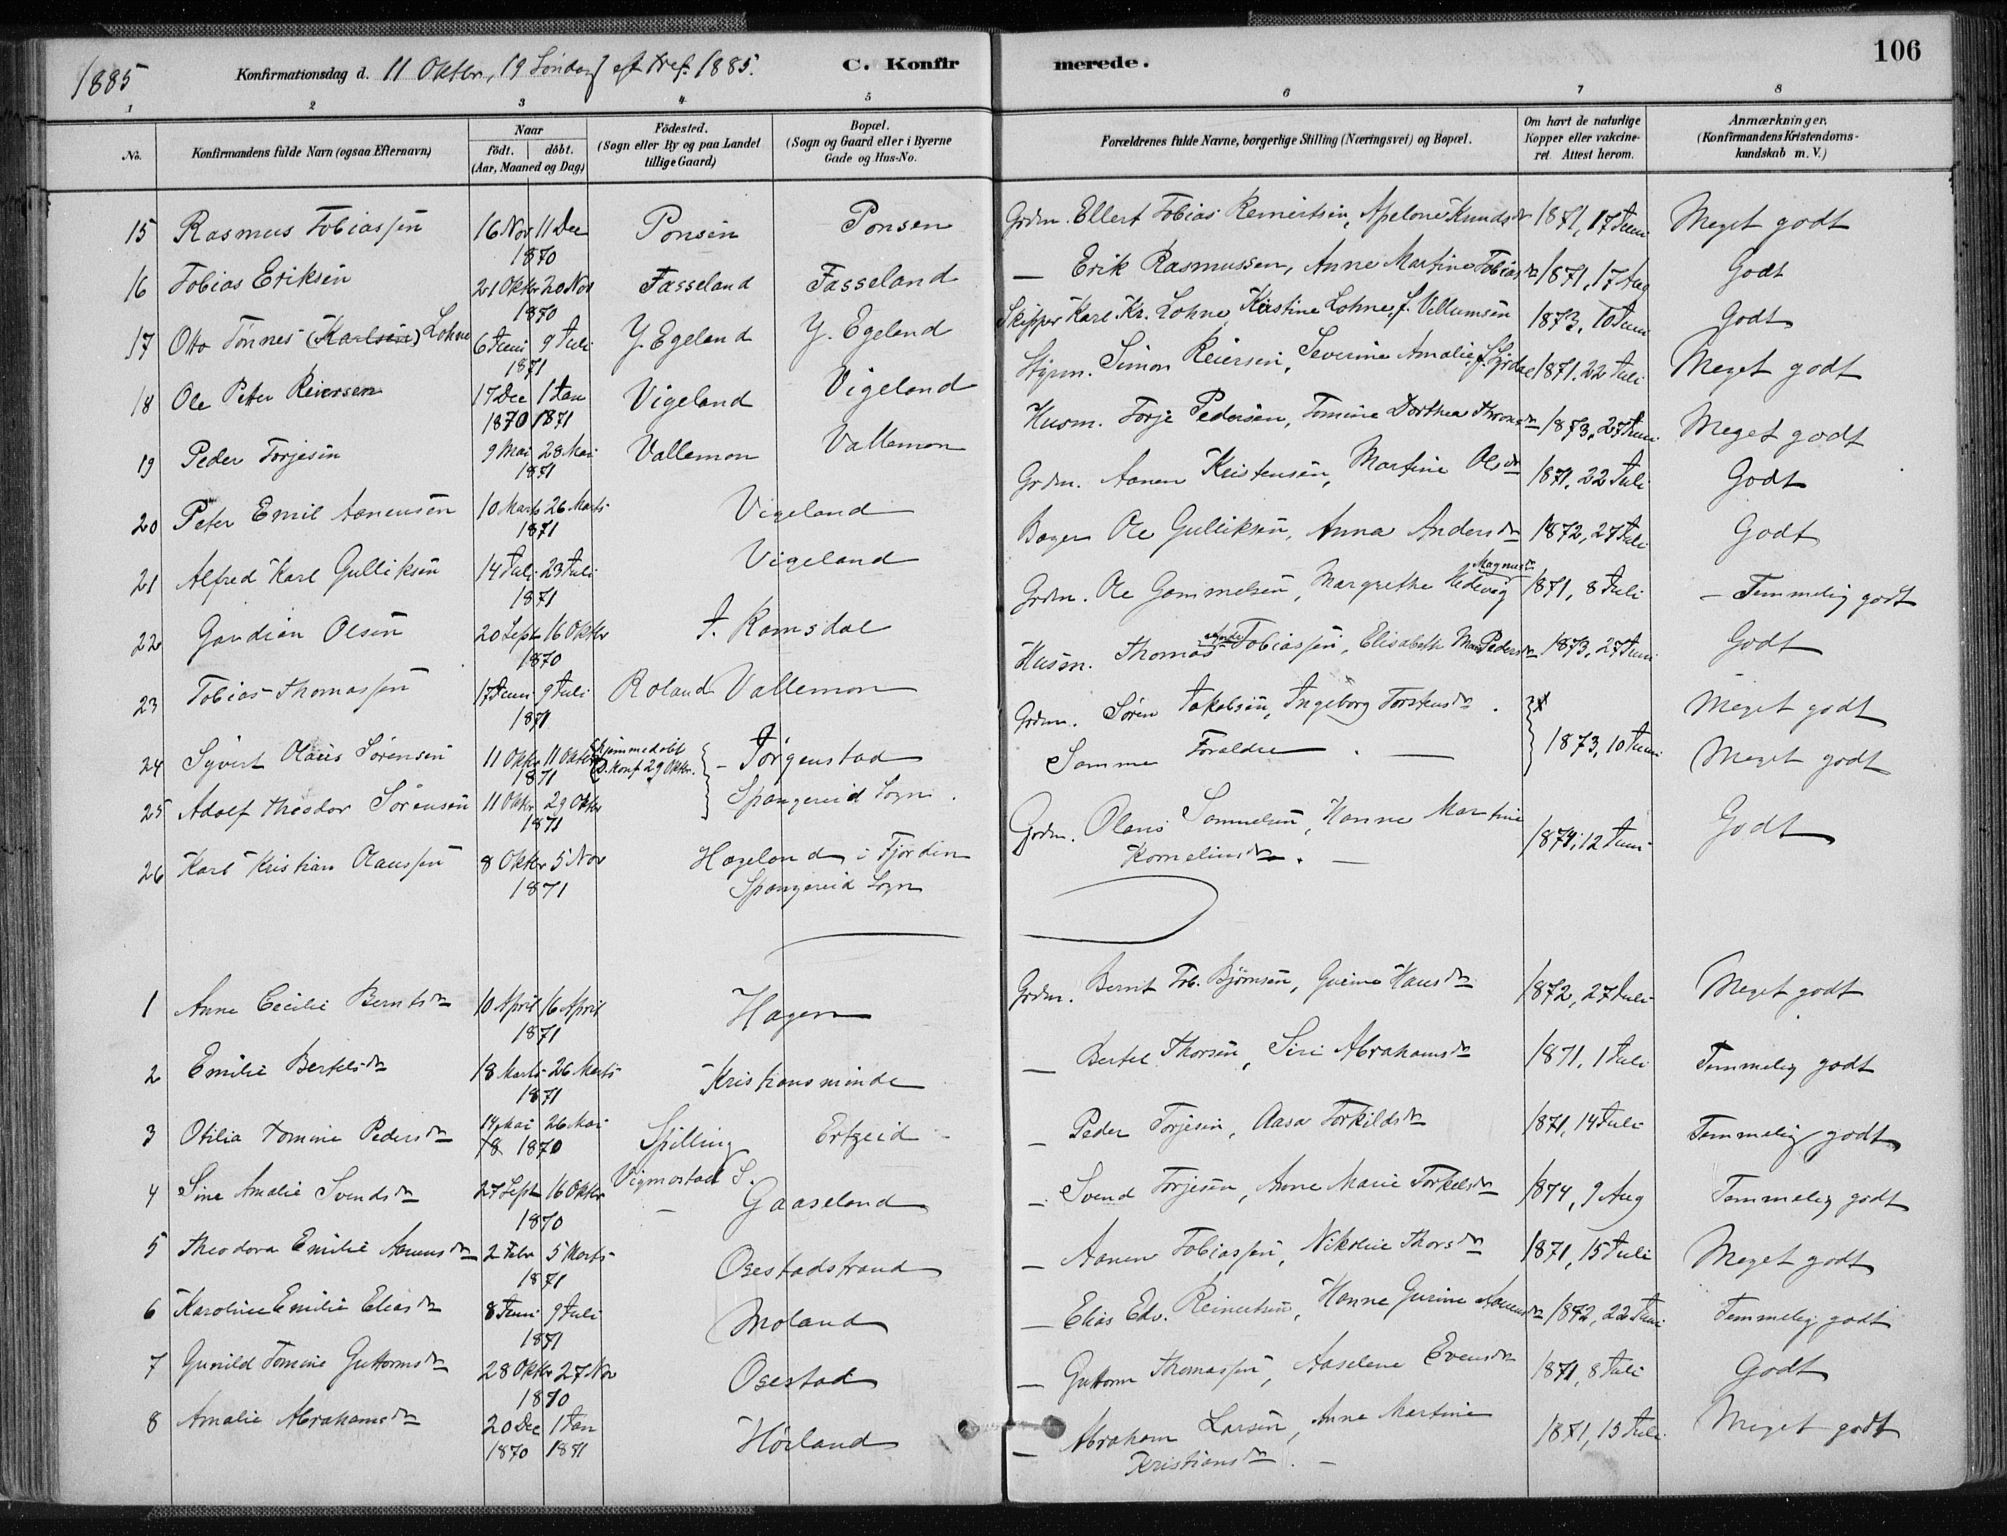 1885
Konfirmationsdag d. 11 Oktbr, 19 Søndag eft Tref. 1885.
C. Konfirmerede.
106
1 2 3 4 5 6 7 8
No. Konfirmandens fulde Navn (ogsaa Efternavn) Naar født. døbt. (Aar, Maaned og Dag) Fødested. (Sogn eller By og paa Landet tillige Gaard) Bopæl. (Sogn og Gaard eller i Byerne Gade og Hus-No. Forældrenes fulde Navne, borgerlige Stilling (Næringsvei) og Bopæl. Om havt de naturlige Kopper eller vakcineret. Attest herom. Anmærkninger. (Konfirmandens Kristendomskundskab m. V.)
15 Rasmus Tobiassen 16 Nov 11 Dec 1870 Ponsen Ponsen Grdm. Ellert Tobias Reinertsen, Apelone Knudsdr 1871, 17 Juni Meget godt
16 Tobias Eriksen 21 Oktbr 20 Nov 1870 Fasseland Fasseland — Erik Rasmussen, Anne Martine Tobiasdr 1871, 17 Aug Godt
17 Otto Tønnes (Karlsen) Lohne 6 Juni 9 Juli 1871 Y. Egeland Y. Egeland Skipper Karl Kr. Lohne, Kristine Lohne f. Villumsen 1873, 10 Juni Godt
18 Ole Peter Reiersen 17 Dec 1 Jan 1870 1871 Vigeland Vigeland Styrm. Simon Reiersen, Severine Amalie f. 1871, 22 Juli Meget godt
19 Peder Torjesen 9 Mai 28 Mai 1871 Vallemon Vallemon Husm. Torje Pedersen, Tomine Dorthea Thomasdr 1873, 27 Juni Meget godt
20 Peter Emil Aanensen 10 Marts 26 Marts 1871 Vigeland Grdm. Aanen Kristensen, Martine Olsdr 1871, 22 Juli Godt
21 Alfred Karl Gulliksen 14 Juli 23 Juli 1871 Vigeland Bager Ole Gulliksen, Anna Andersdr 1872, 27 Juli Godt
22 Gardian Olsen 20 Sept 16 Oktbr 1870 I. Ramsdal Grdm. Ole Gammelsen, Margrethe Hedevig Magnusdr 1871, 8 Juli — Temmelig godt
23 Tobias Thomassen 17 Juni 9 Juli 1871 Roland Vallemon Husm. Thomas Tobiassen, Elisabeth Pedersdr 1873, 27 Juni Godt
24 Syvert Olaus Sørensen 11 Oktbr 11 Oktbr 1871 (Hjemmedøbt D. konf 29 Oktbr.) — Jørgenstad Grdm. Søren Jakobsen, Ingeborg Torstensdr. Meget godt
25 Adolf Theodor Sørensen 11 Oktbr 29 Oktbr 1871 Spangereid Sogn. Samme Forældre. — 1873, 10 Juni Meget godt
26 Karl Kristian Olaussen 8 Oktbr 5 Nov 1871 Hageland i Fjorden Spangereid Sogn Grdm. Olaus Samuelsen, Hanne Martine Korneliusdr. — 1874, 12 Juni Godt
1 Anne Cecilie Berntsdr 10 April 16 April 1871 Hagen Grdm. Bernt Tob. Bjørnsen, Gurine Hansdr 1872, 27 Juli Meget godt
2 Emilie Bertelsdr 18 Marts 26 Marts 1871 Kristiansminde — Bertel Thorsen, Siri Abrahamsdr 1871, 1 Juli Temmelig godt
3 Otilia Tomine Pedersdr 14 Mai 26 Mai 1870 Spilling Ertzeid — Peder Torjesen, Aasa Torkildsdr 1871, 14 Juli Temmelig godt
4 Sine Amalie Svendsdr 27 Sept 16 Oktbr 1870 Vigmostad S. — Gaaseland — Svend Torjesen, Anne Marie Torkelsdr 1874, 9 Aug Temmelig godt
5 Theodora Emilie Aanensdr 2 Febr 5 Marts 1871 Osestadstrand — Aanen Tobiassen, Nikoline Thorsdr 1871, 15 Juli Meget godt
6 Karoline Emilie Eliasdr 8 Juni 9 Juli 1871 Moland — Elias Edv. Reinertsen, Hanne Gurine Aanensdr 1872, 22 Juni Temmelig godt
7 Gunild Tomine Guttormsdr 28 Oktbr 27 Nov 1870 Osestad — Guttorm Thomassen, Aaselene Evensdr 1871, 8 Juli Godt
8 Amalie Abrahamsdr 20 Dec 1 Jan 1870 1871 Høiland — Abraham Larsen, Anne Martine Kristiansdr. — 1871, 15 Juli Meget godt